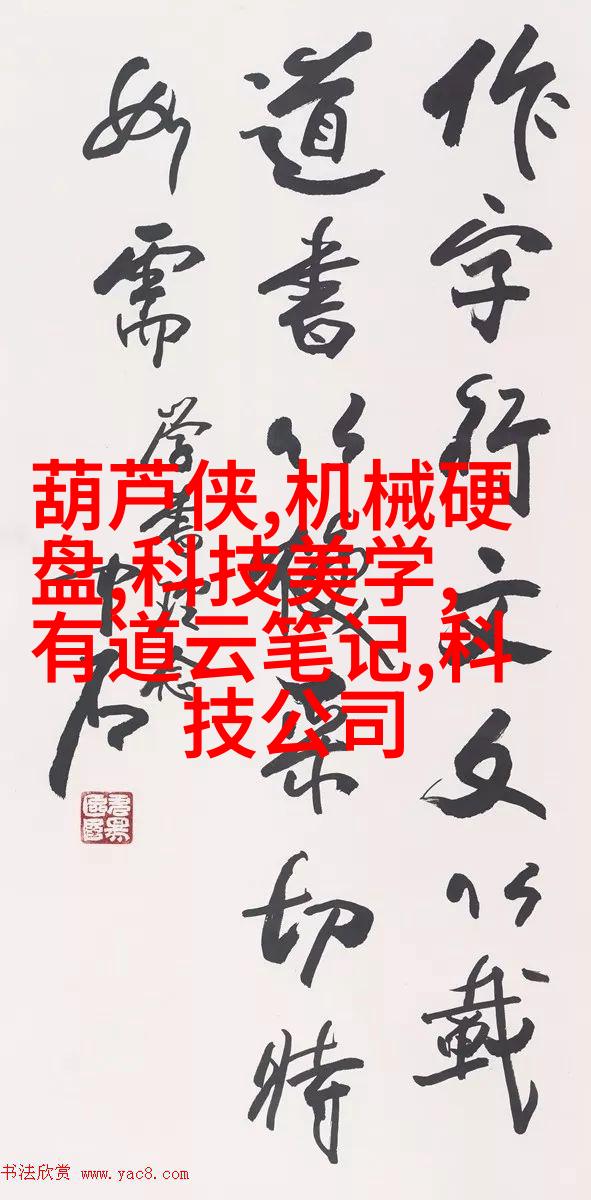 作字行文文以載
道書以煥采切時
如需
学書理念
中石
葫芦侠,机械硬
盘,科技美学,
有道云笔记,科
技公司
书法欣赏 www.yac8.com